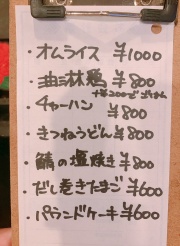 ・オムライス ¥1000
・油淋鶏 ¥800
+¥200でごはん
・チャーハン ¥800
・きつねうどん ¥800
・鯖の塩焼き ¥800
・だし巻きたまご ¥600
・パウンドケーキ ¥600